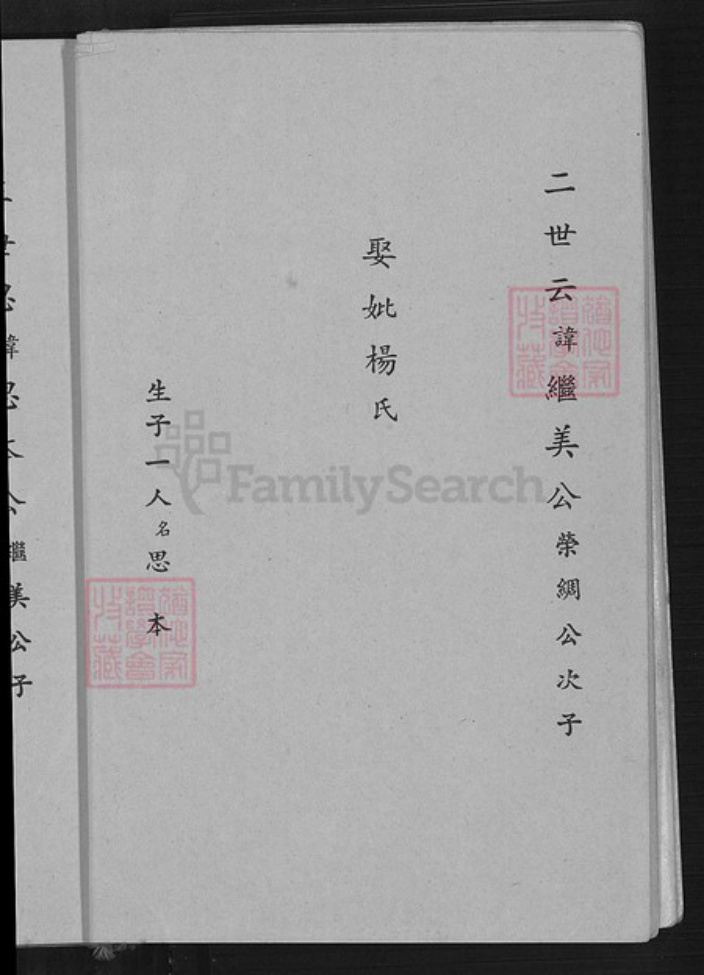 二世云諱繼美公榮綢公次子
娶妣楊氏
生子一人名思本
諱思本公繼美公子
FamilySearch